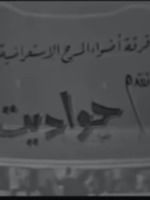 فرقة أضواء المسرح الاستعراضية
تقدم
حواديت